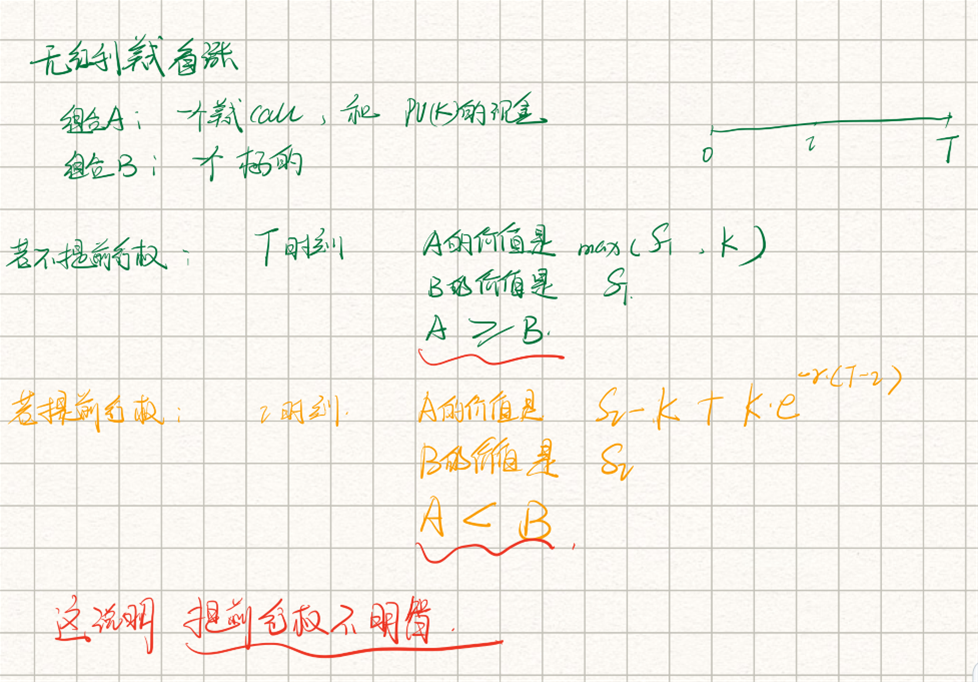 无红利美式看涨
组合A: 一个美式call, 和 PV(K)的现金
组合B: 一个标的
0 τ T
若不提前行权: T时刻 A的价值是 max(S_T, K)
B的价值是 S_T
A ≥ B.
若提前行权: τ时刻. A的价值是 S_τ - K + K·e^{-r·(T-τ)}
B的价值是 S_τ
A < B.
这说明 提前行权不明智.